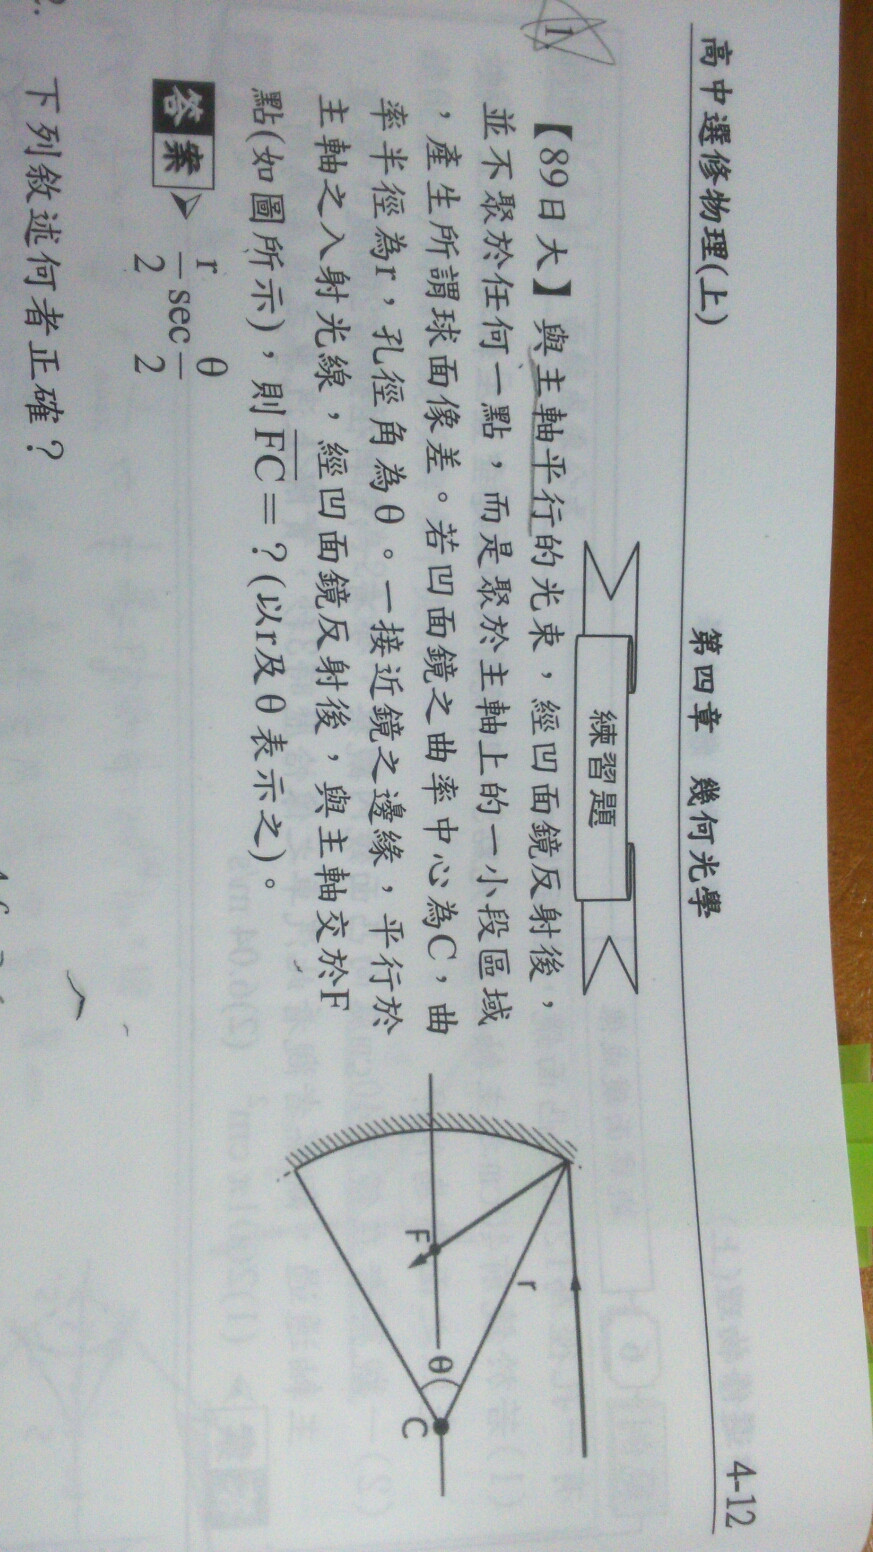 高中選修物理(上)
第四章 幾何光學
4-12
練習題
1
【89日大】與主軸平行的光束，經凹面鏡反射後，
並不聚於任何一點，而是聚於主軸上的一小段區域
，產生所謂球面像差。若凹面鏡之曲率中心為C，曲
率半徑為r，孔徑角為θ。一接近鏡之邊緣，平行於
主軸之入射光線，經凹面鏡反射後，與主軸交於F
點(如圖所示)，則F̅C̅＝？(以r及θ表示之)。
r
F
θ
C
答案 r/2 sec θ/2
下列敘述何者正確？